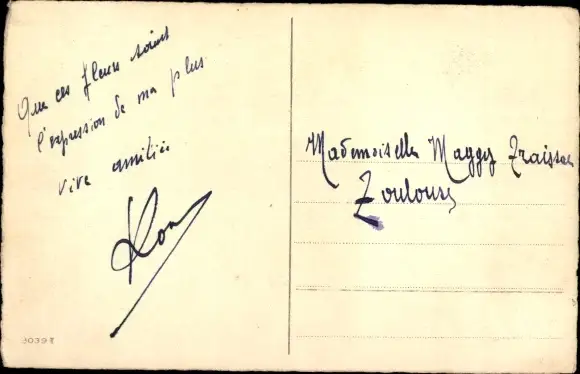 Que ces fleurs soient
l'expression de ma plus
vive amitiée
Mademoiselle Maggy Fraisse
Toulouse